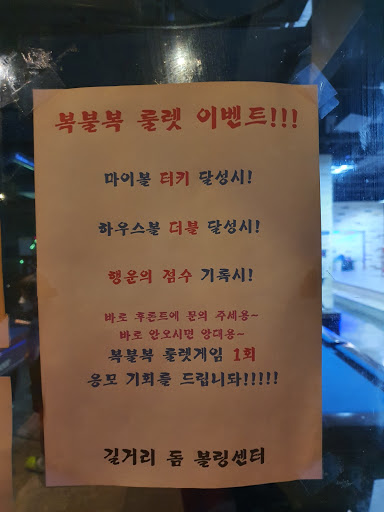 복불복 룰렛 이벤트!!!
마이볼 터키 달성시!
하우스볼 더블 달성시!
행운의 점수 기록시!
바로 후론트에 문의 주세용~
바로 안오시면 앙대용~
복불복 룰렛게임 1회
응모 기회를 드립니돠!!!!!
길거리 돔 볼링센터